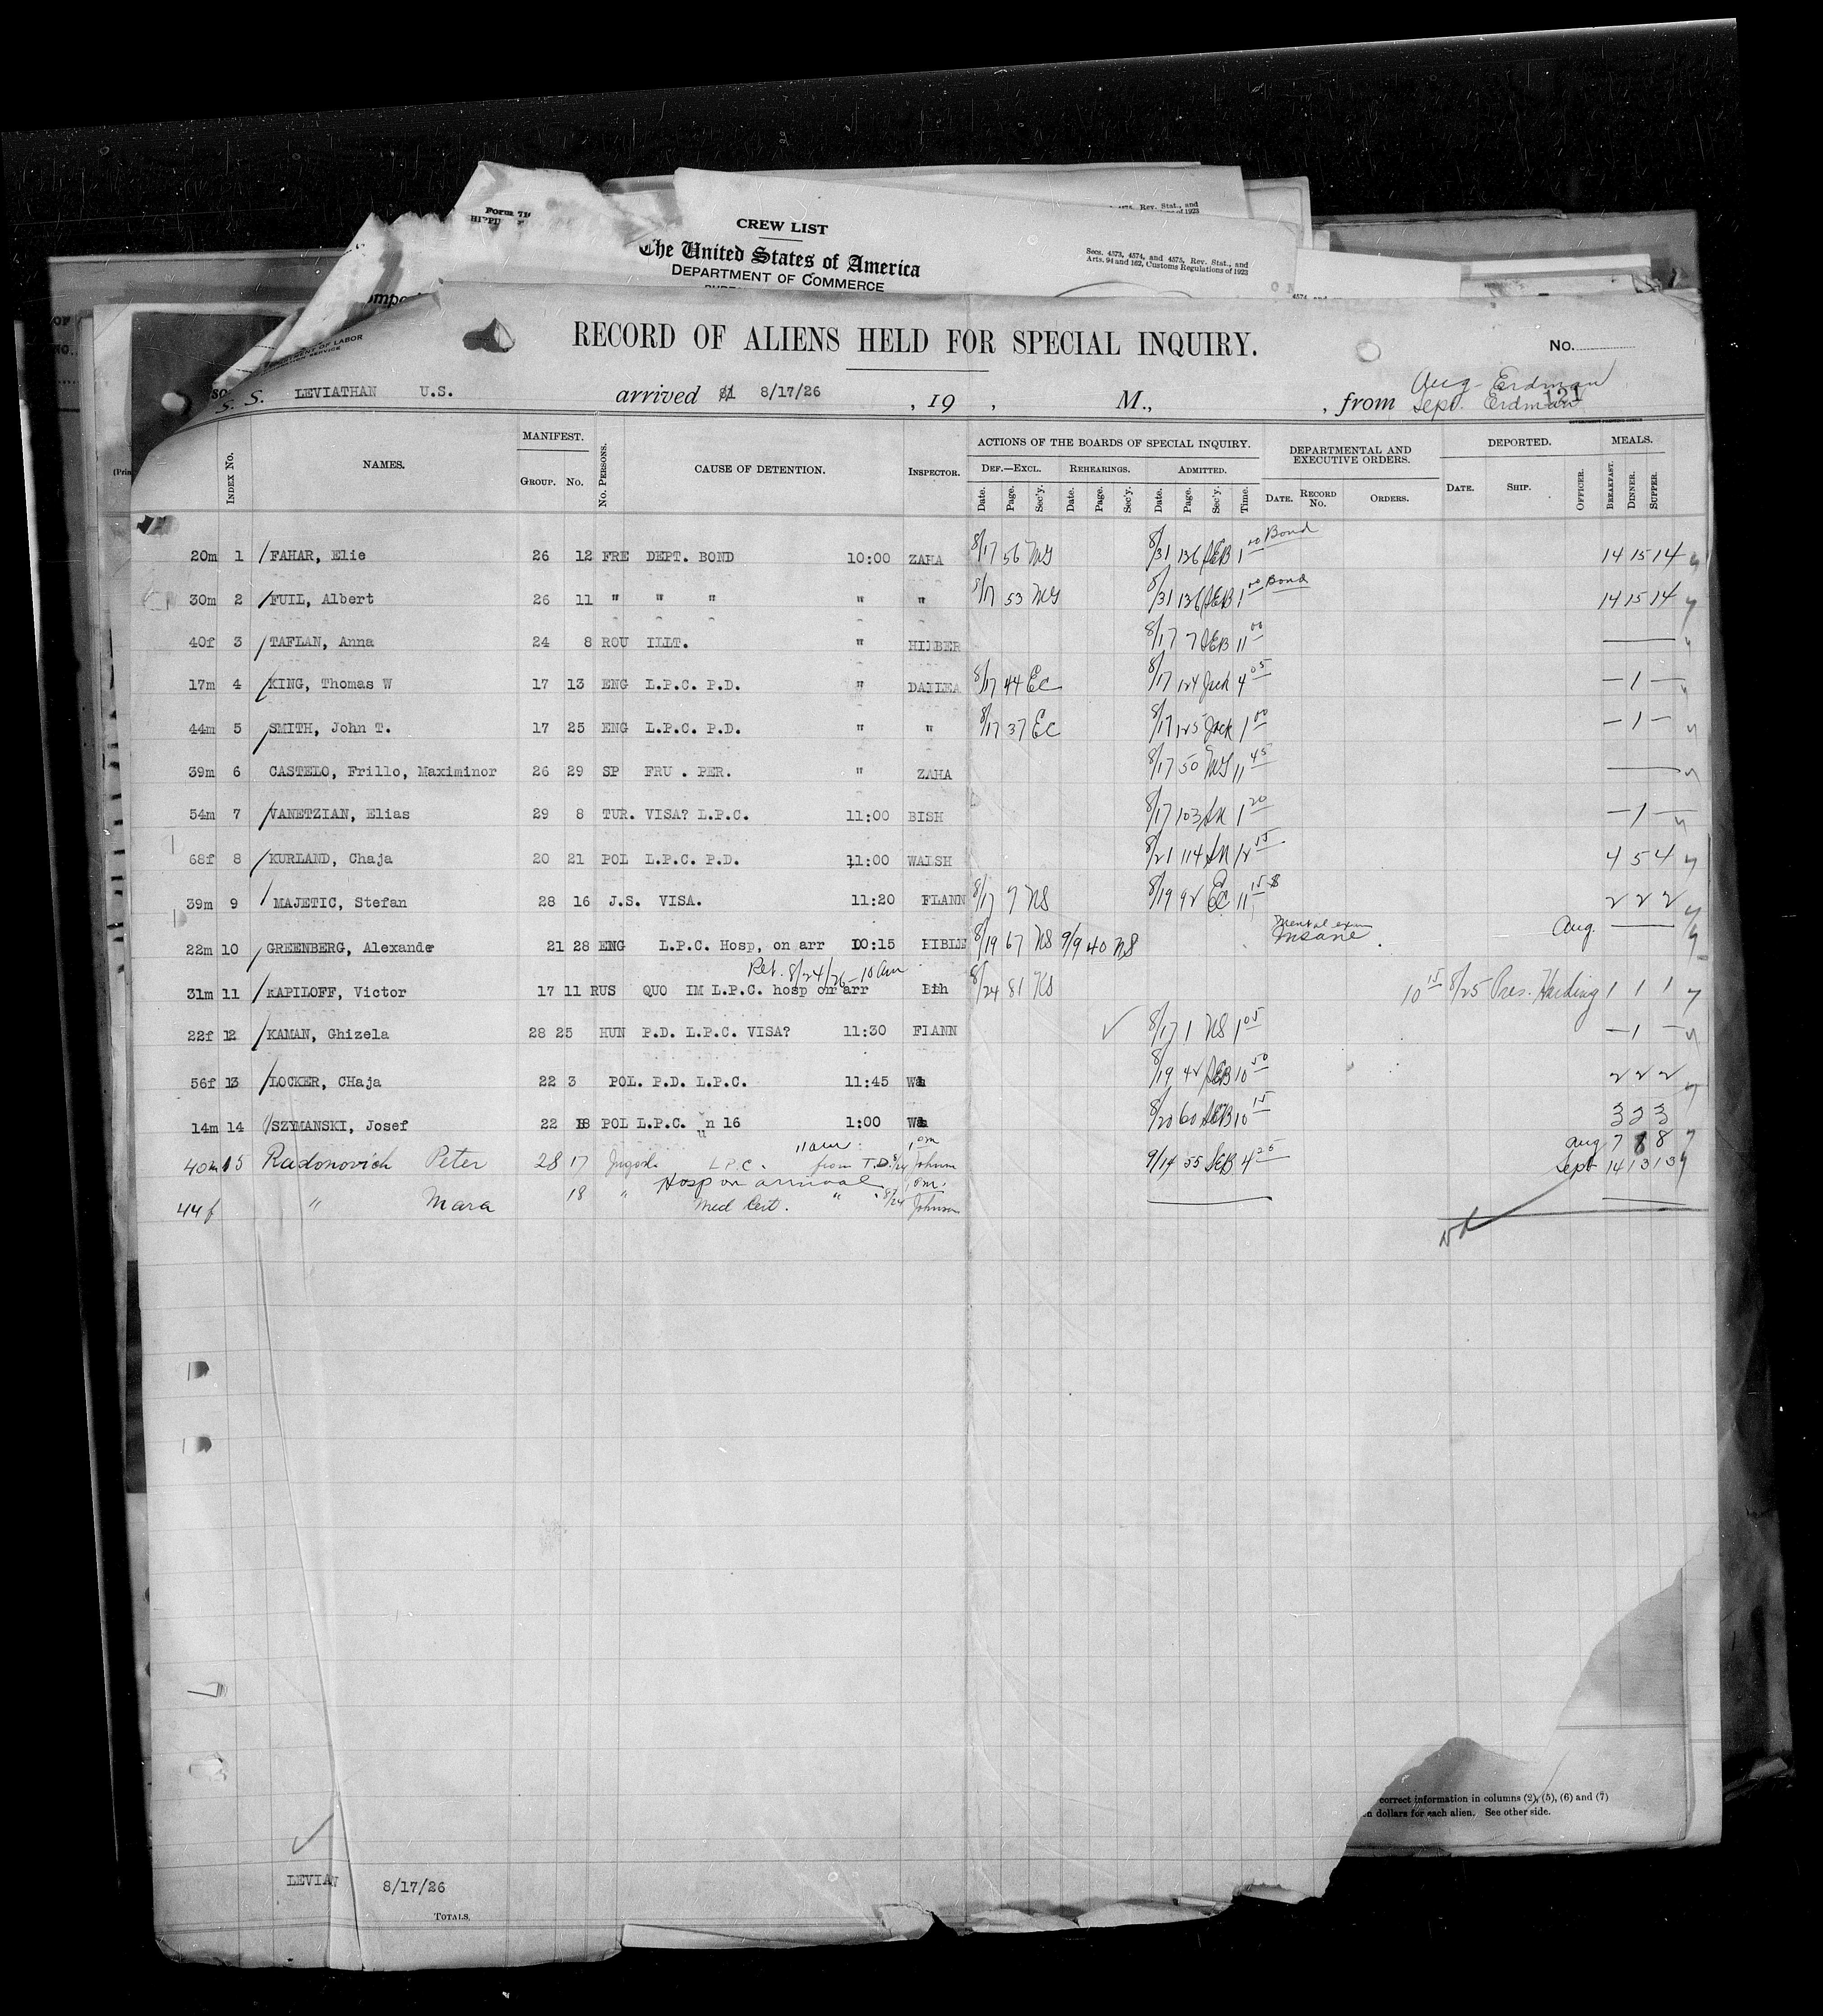 Form 71
CREW LIST
The United States of America
DEPARTMENT OF COMMERCE
Rev. Stat., and
of 1923
Secs. 4573, 4574, and 4575, Rev. Stat., and
Arts. 94 and 162, Customs Regulations of 1923
RECORD OF ALIENS HELD FOR SPECIAL INQUIRY.
No.
S. S. LEVIATHAN U.S. arrived 8/17/26 , 19 , M., , from Aug Erdman
Sept. Erdman
121
INDEX No. NAMES. MANIFEST. GROUP. No. No. PERSONS. CAUSE OF DETENTION. INSPECTOR. ACTIONS OF THE BOARDS OF SPECIAL INQUIRY. DEPARTMENTAL AND EXECUTIVE ORDERS. DEPORTED. MEALS.
DEF.—EXCL. REHEARINGS. ADMITTED.
Date. Page. Sec'y. Date. Page. Sec'y. Date. Page. Sec'y. Time. DATE. RECORD No. ORDERS. DATE. SHIP. OFFICER. BREAKFAST. DINNER. SUPPER.
20m 1 FAHAR, Elie 26 12 FRE DEPT. BOND 10:00 ZAHA 8/17 56 MG 8/31 136 SEB 1 00 Bond 14 15 14
30m 2 FUIL, Albert 26 11 " " " " " 8/17 53 MG 8/31 136 SEB 1 00 Bond 14 15 14
40f 3 TAFLAN, Anna 24 8 ROU ILLT. " HILBER 8/17 7 SEB 11 00
17m 4 KING, Thomas W 17 13 ENG L.P.C. P.D. " DAILEA 8/17 44 EC 8/17 124 Jack 4 05 — 1 —
44m 5 SMITH, John T. 17 25 ENG L.P.C. P.D. " " 8/17 37 EC 8/17 125 Jack 1 00 — 1 —
39m 6 CASTELO, Frillo, Maximinor 26 29 SP FRU . PER. " ZAHA 8/17 50 MG 11 45
54m 7 VANETZIAN, Elias 29 8 TUR. VISA? L.P.C. 11:00 BISH 8/17 103 1 20 — 1 —
68f 8 KURLAND, Chaja 20 21 POL L.P.C. P.D. 11:00 WALSH 8/21 114 4 5 4
39m 9 MAJETIC, Stefan 28 16 J.S. VISA. 11:20 FLANN 8/17 9 NS 8/19 92 EC 11 15 2 2 2
22m 10 GREENBERG, Alexander 21 28 ENG L.P.C. Hosp, on arr 10:15 8/19 67 NS 9/9 40 NS Mental exam Insane. Aug.
Ret. 8/24/26 — 10 am
31m 11 KAPILOFF, Victor 17 11 RUS QUO IM L.P.C. hosp on arr 8/24 81 NS 10 15 8/25 Pres. Harding 1 1 1
22f 12 KAMAN, Ghizela 28 25 HUN P.D. L.P.C. VISA? 11:30 FLANN 8/17 1 NS 1 05 — 1 —
56f 13 LOCKER, CHaja 22 3 POL. P.D. L.P.C. 11:45 8/19 42 SEB 10 50 2 2 2
14m 14 SZYMANSKI, Josef 22 18 POL L.P.C. un 16 1:00 8/20 60 SEB 10 15 3 3 3
40m 15 Radonovich Peter 28 17 Jugosla L.P.C. from T.D. 8/24 11 am. Johnson 9/14 55 SEB 4 25 Aug 7 8 8
Sept 14 13 13
Hosp on arrival
44f " Mara 18 " Med Cert. " " 8/24 Johnson
correct information in columns (2), (5), (6) and (7)
dollars for each alien. See other side.
LEVIAN 8/17/26
TOTALS.